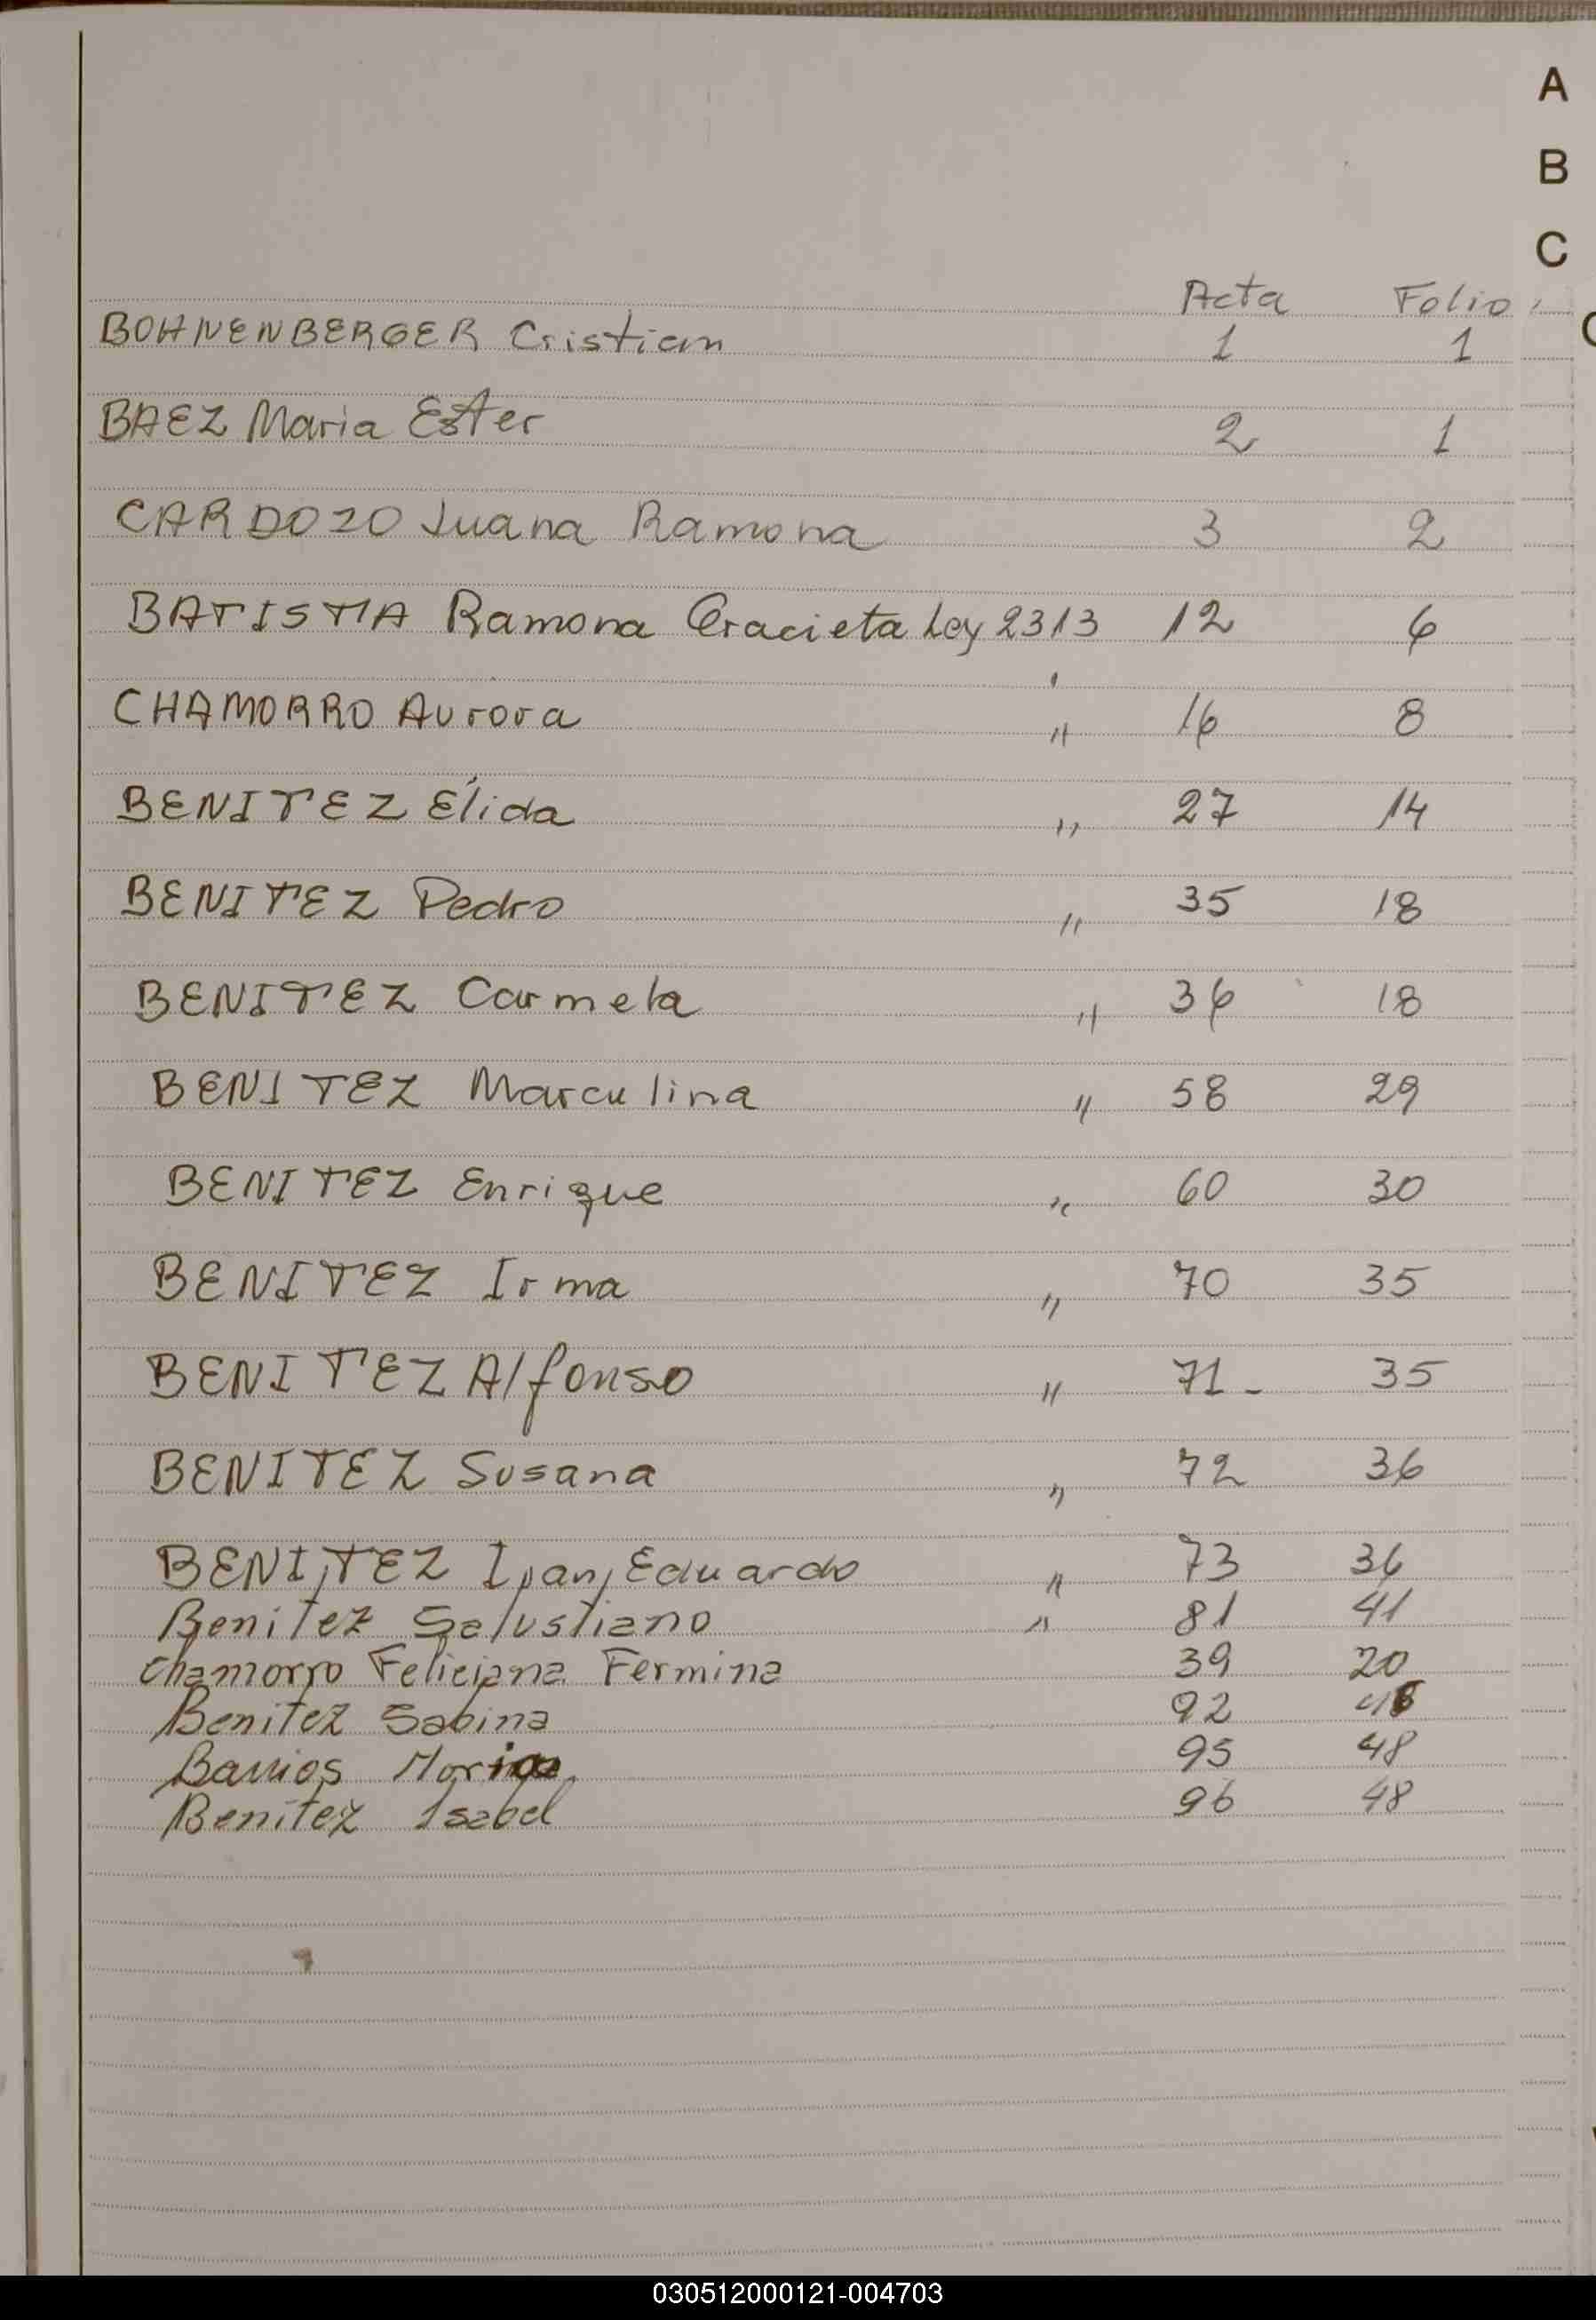 A
B
C
Acta Folio
BOHNENBERGER Cristian 1 1
BAEZ Maria Ester 2 1
CARDOZO Juana Ramona 3 2
BATISTTA Ramona Gracieta Ley 2313 12 6
CHAMORRO Aurora " 16 8
BENITEZ Élida " 27 14
BENITEZ Pedro " 35 18
BENITEZ Carmela " 36 18
BENITEZ Marculina " 58 29
BENITEZ Enrique " 60 30
BENITEZ Irma " 70 35
BENITEZ Alfonso " 71 - 35
BENITEZ Susana " 72 36
BENITEZ Ivan, Eduardo " 73 36
Benitez Salustiano " 81 41
Chamorro Feliciana Fermina 39 20
Benitez Sabina 92
Barrios 95 48
Benitez Isabel 96 48
030512000121-004703